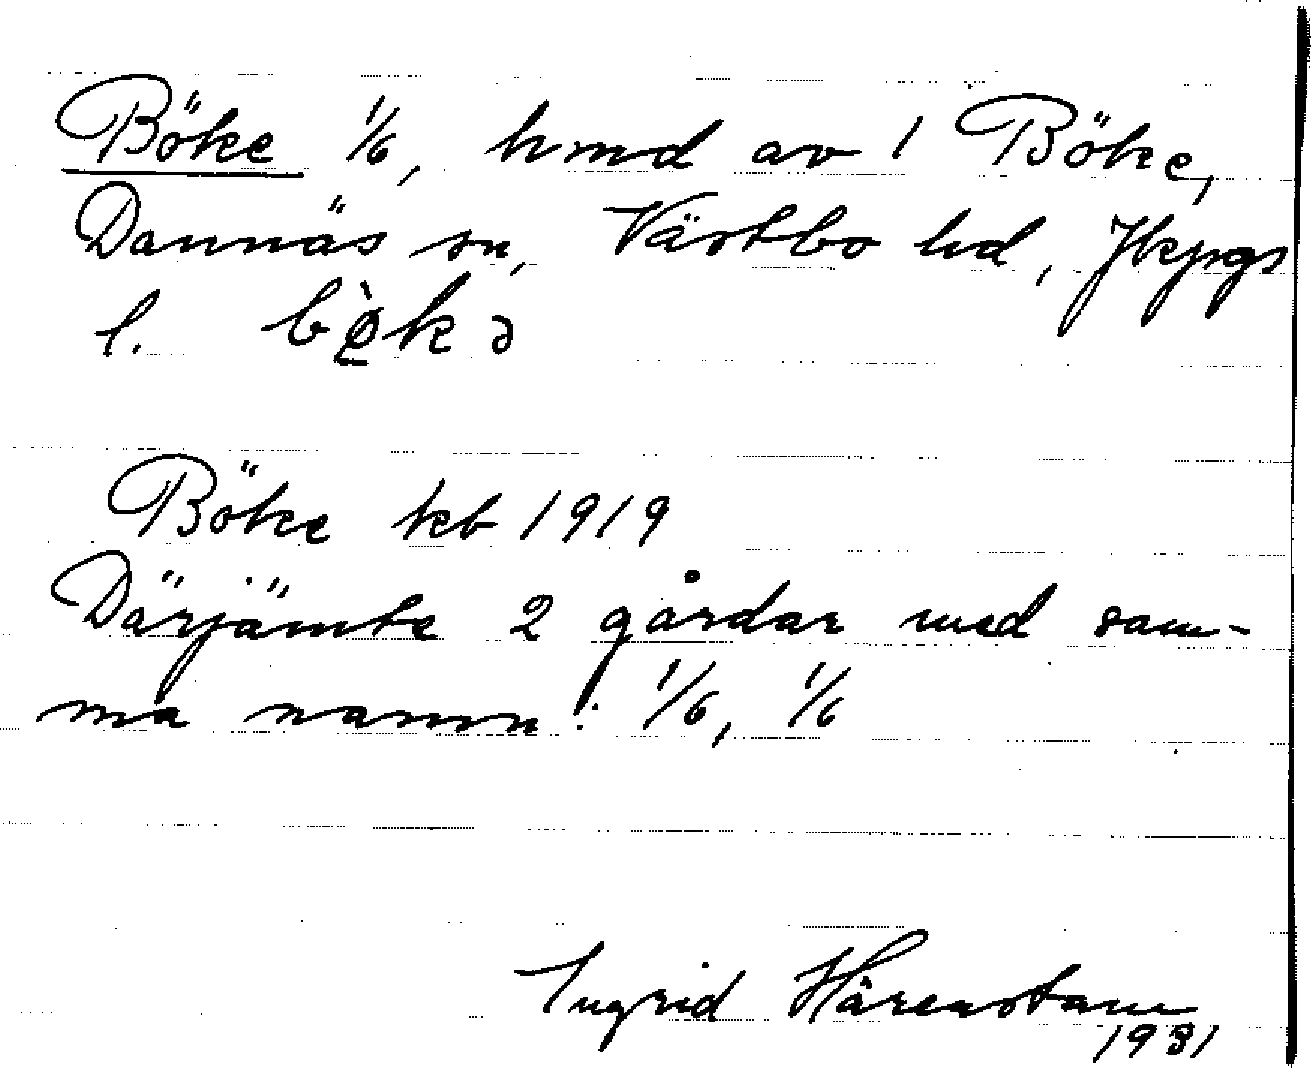 Böke 1/6, hmd av 1 Böke,
Dannäs sn, Västbo hd, Jkpgs
l. bø̀kə
Böke kb 1919
Därjämte 2 gårdar med sam-
ma namn: 1/6, 1/6
Ingrid Härenstam
1931